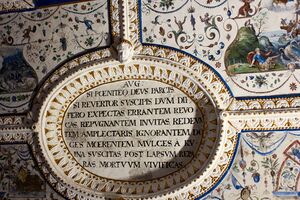 AVG.
SI POENITEO DEVS PARCIT
SI REVERTOR SVSCIPIS DVM DIF
FERO EXPECTAS ERRANTEM REVO
CAS REPVGNANTEM INVITAS REDEVN
TEM AMPLECTARIS, IGNORANTEM, DO
CES MOERENTEM MVLCES A RV
INA SVSCITAS POST LAPSVM REPA
RAS MORTVVM VIVIFICAS